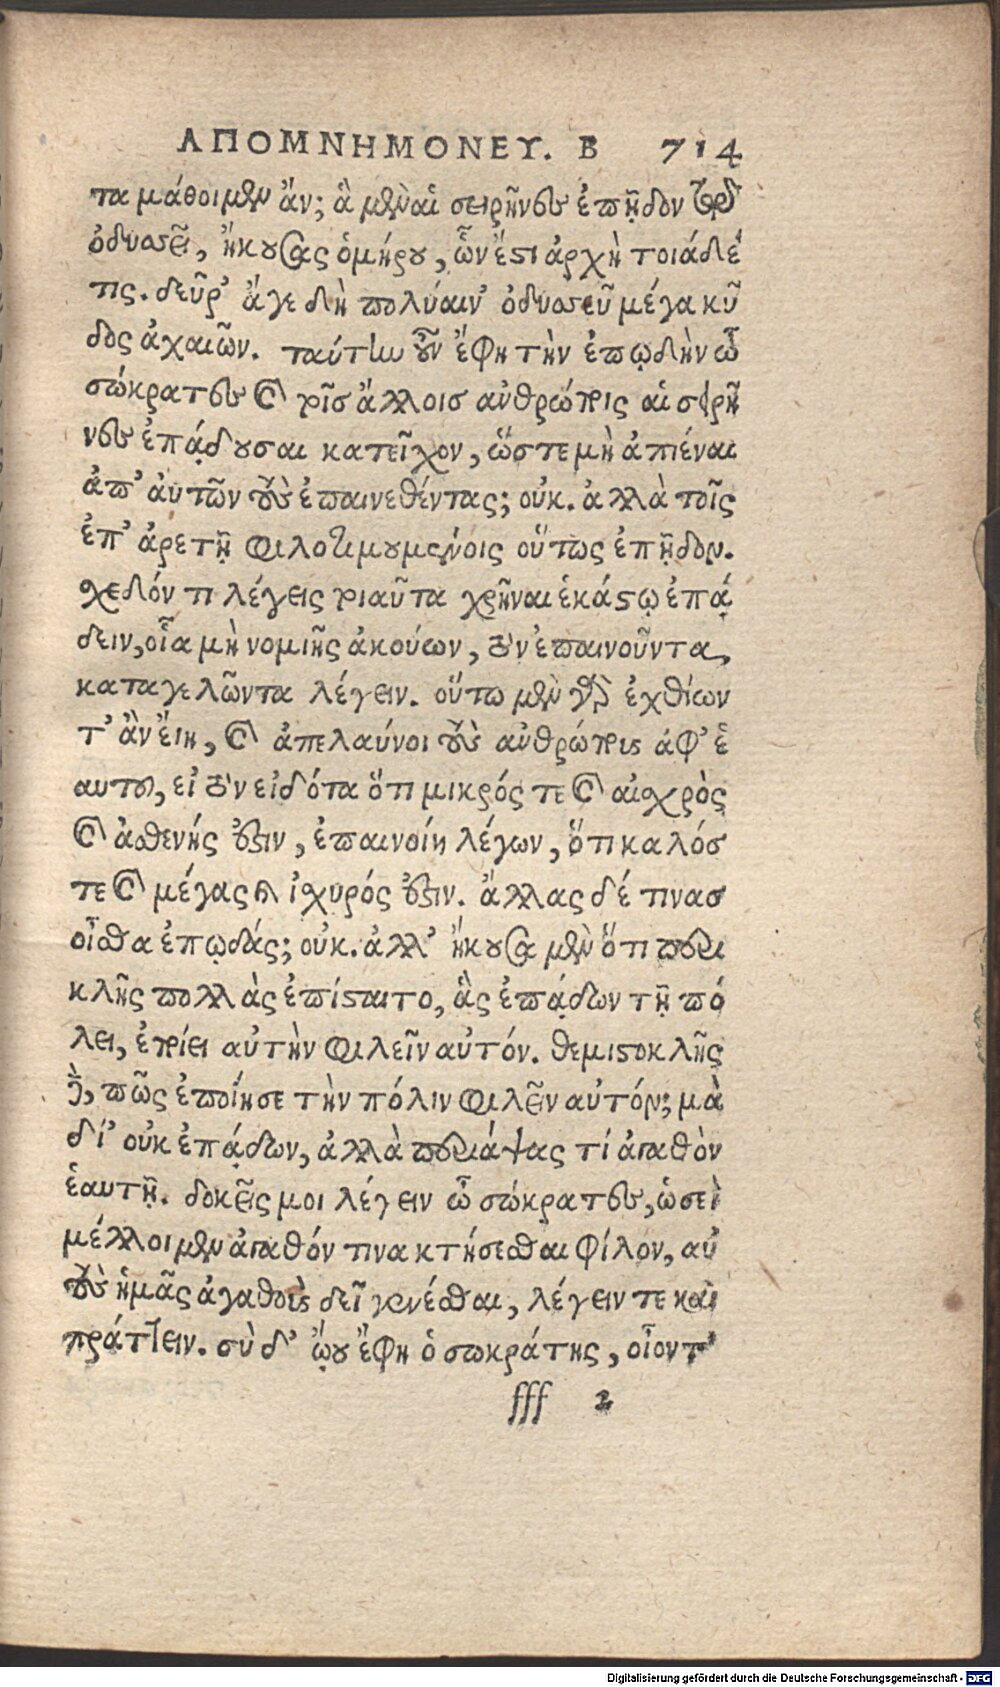 ΑΠΟΜΝΗΜΟΝΕΥ. Β 714
τα μάθοιμεν ἄν; ἃ μὲν αἱ σειρῆνες ἐπῇδον τῷ
ὀδυσσεῖ, ἤκουσας ὁμήρου, ὧν ἔστι ἀρχὴ τοιάδέ
τις. δεῦρ’ ἄγε δὴ πολύαιν’ ὀδυσσεῦ μέγα κῦ
δος ἀχαιῶν. ταύτην οὖν ἔφη τὴν ἐπῳδὴν ὦ
σώκρατες καὶ τοῖσ ἄλλοισ ἀνθρώποις αἱ σειρῆ
νες ἐπᾴδουσαι κατεῖχον, ὥστε μὴ ἀπιέναι
ἀπ’ ἀυτῶν τοὺς ἐπαινεθέντας; οὐκ. ἀλλὰ τοῖς
ἐπ’ ἀρετῇ φιλοτιμουμένοις οὕτως ἐπῇδον.
σχεδόν τι λέγεις τοιαῦτα χρῆναι ἑκάστῳ ἐπᾴ
δειν, οἷα μὴ νομιῆς ἀκούων, τὸν ἐπαινοῦντα,
καταγελῶντα λέγειν. οὕτω μὲν γὰρ ἐχθίων
τ’ ἂν ἔιη, καὶ ἀπελαύνοι τοὺς ἀνθρώποις ἀφ’ ἑ
αυτοῦ, εἰ τὸν εἰδότα ὅτι μικρός τε καὶ αἰσχρὸς
καὶ ἀσθενής ἐστιν, ἐπαινοίη λέγων, ὅτι καλόσ
τε καὶ μέγας καὶ ἰσχυρός ἐστιν. ἄλλας δέ τινασ
οἶσθα ἐπῳδάς; οὐκ. ἀλλ’ ἤκουσα μὲν ὅτι περι
κλῆς πολλὰς ἐπίσταιτο, ἃς ἐπᾴδων τῇ πό
λει, ἐποίει αὐτὴν φιλεῖν αὐτόν. θεμιστοκλῆς
δὲ, πῶς ἐποίησε τὴν πόλιν φιλεῖν αὐτόν; μὰ
δί’ οὐκ ἐπᾴδων, ἀλλὰ περιάψας τί ἀγαθὸν
ἑαυτῇ. δοκεῖς μοι λέγειν ὦ σώκρατες, ὡσεὶ
μέλλοιμεν ἀγαθόν τινα κτήσεσθαι φίλον, αὐ
τοὺς ἡμᾶς ἀγαθοὺς δεῖ γενέσθαι, λέγειν τε καὶ
πράττειν. σὺ δ’ ᾤου ἔφη ὁ σωκράτης, οἷοντ’
fff 2
Digitalisierung gefördert durch die Deutsche Forschungsgemeinschaft - DFG